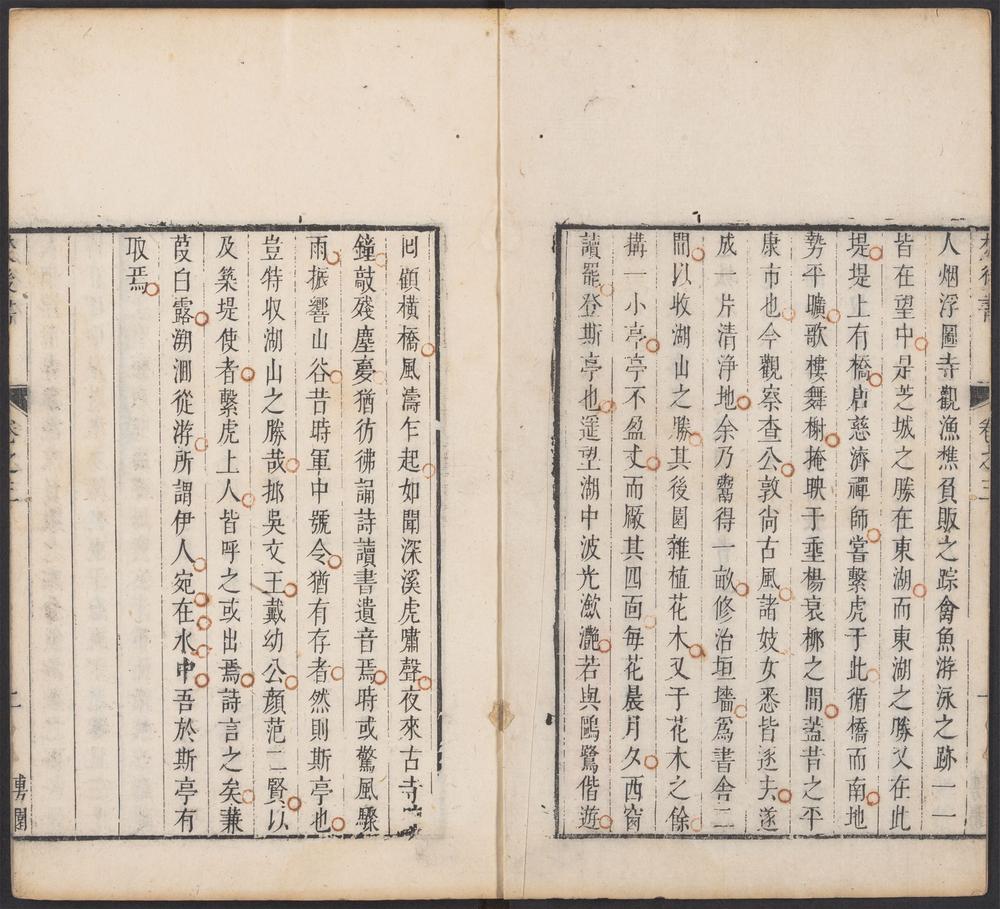 人烟浮圖寺觀漁樵負販之踪禽魚游泳之跡一一
皆在望中是芝城之勝在東湖而東湖之勝又在此
堤堤上有橋唐慈濟禪師嘗繫虎于此循橋而南地
勢平曠歌樓舞榭掩映于埀楊衰栁之間蓋昔之平
康市也今觀察查公敦尚古風諸妓女悉皆逐去遂
成一片清浄地余乃鬻得一畝修治垣墻爲書舍二
間以收湖山之勝其後園雜植花木又于花木之餘
搆一小亭亭不盈丈而厰其四面每花晨月夕西窗
讀罷登斯亭也遥望湖中波光瀲灧若與鷗鷺偕遊
囘顧横橋風濤乍起如聞深溪虎嘯聲夜來古寺
鐘敲殘塵夢猶彷彿誦詩讀書遺音焉時或驚風驟
雨振響山谷昔時軍中號令猶有存者然則斯亭也
豈特収湖山之勝哉挪吳文王戴幼公顔范二賢以
及築堤使者繫虎上人皆呼之或出焉詩言之矣蒹
葭白露溯洄從游所謂伊人宛在水中吾於斯亭有
取焉
卷之三